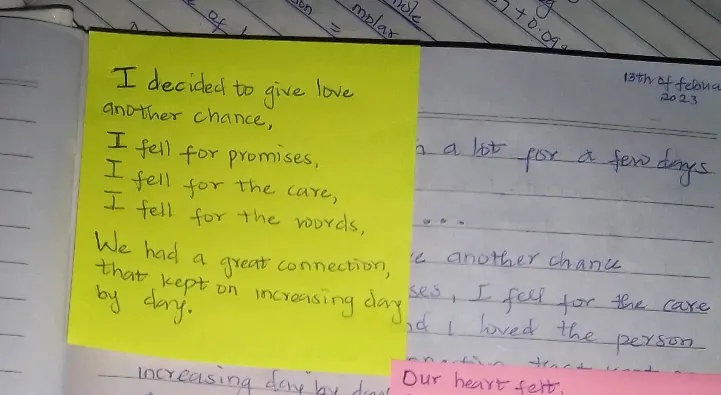 of
molar
mole
7 + 0.09
I decided to give love
another chance,
I fell for promises,
I fell for the care,
I fell for the words,
We had a great connection,
that kept on increasing day
by day.
13th of
2023
a lot for a few days
....
another chance
ses, I fell for the care
I loved the person
increasing day by day
Our heart felt,